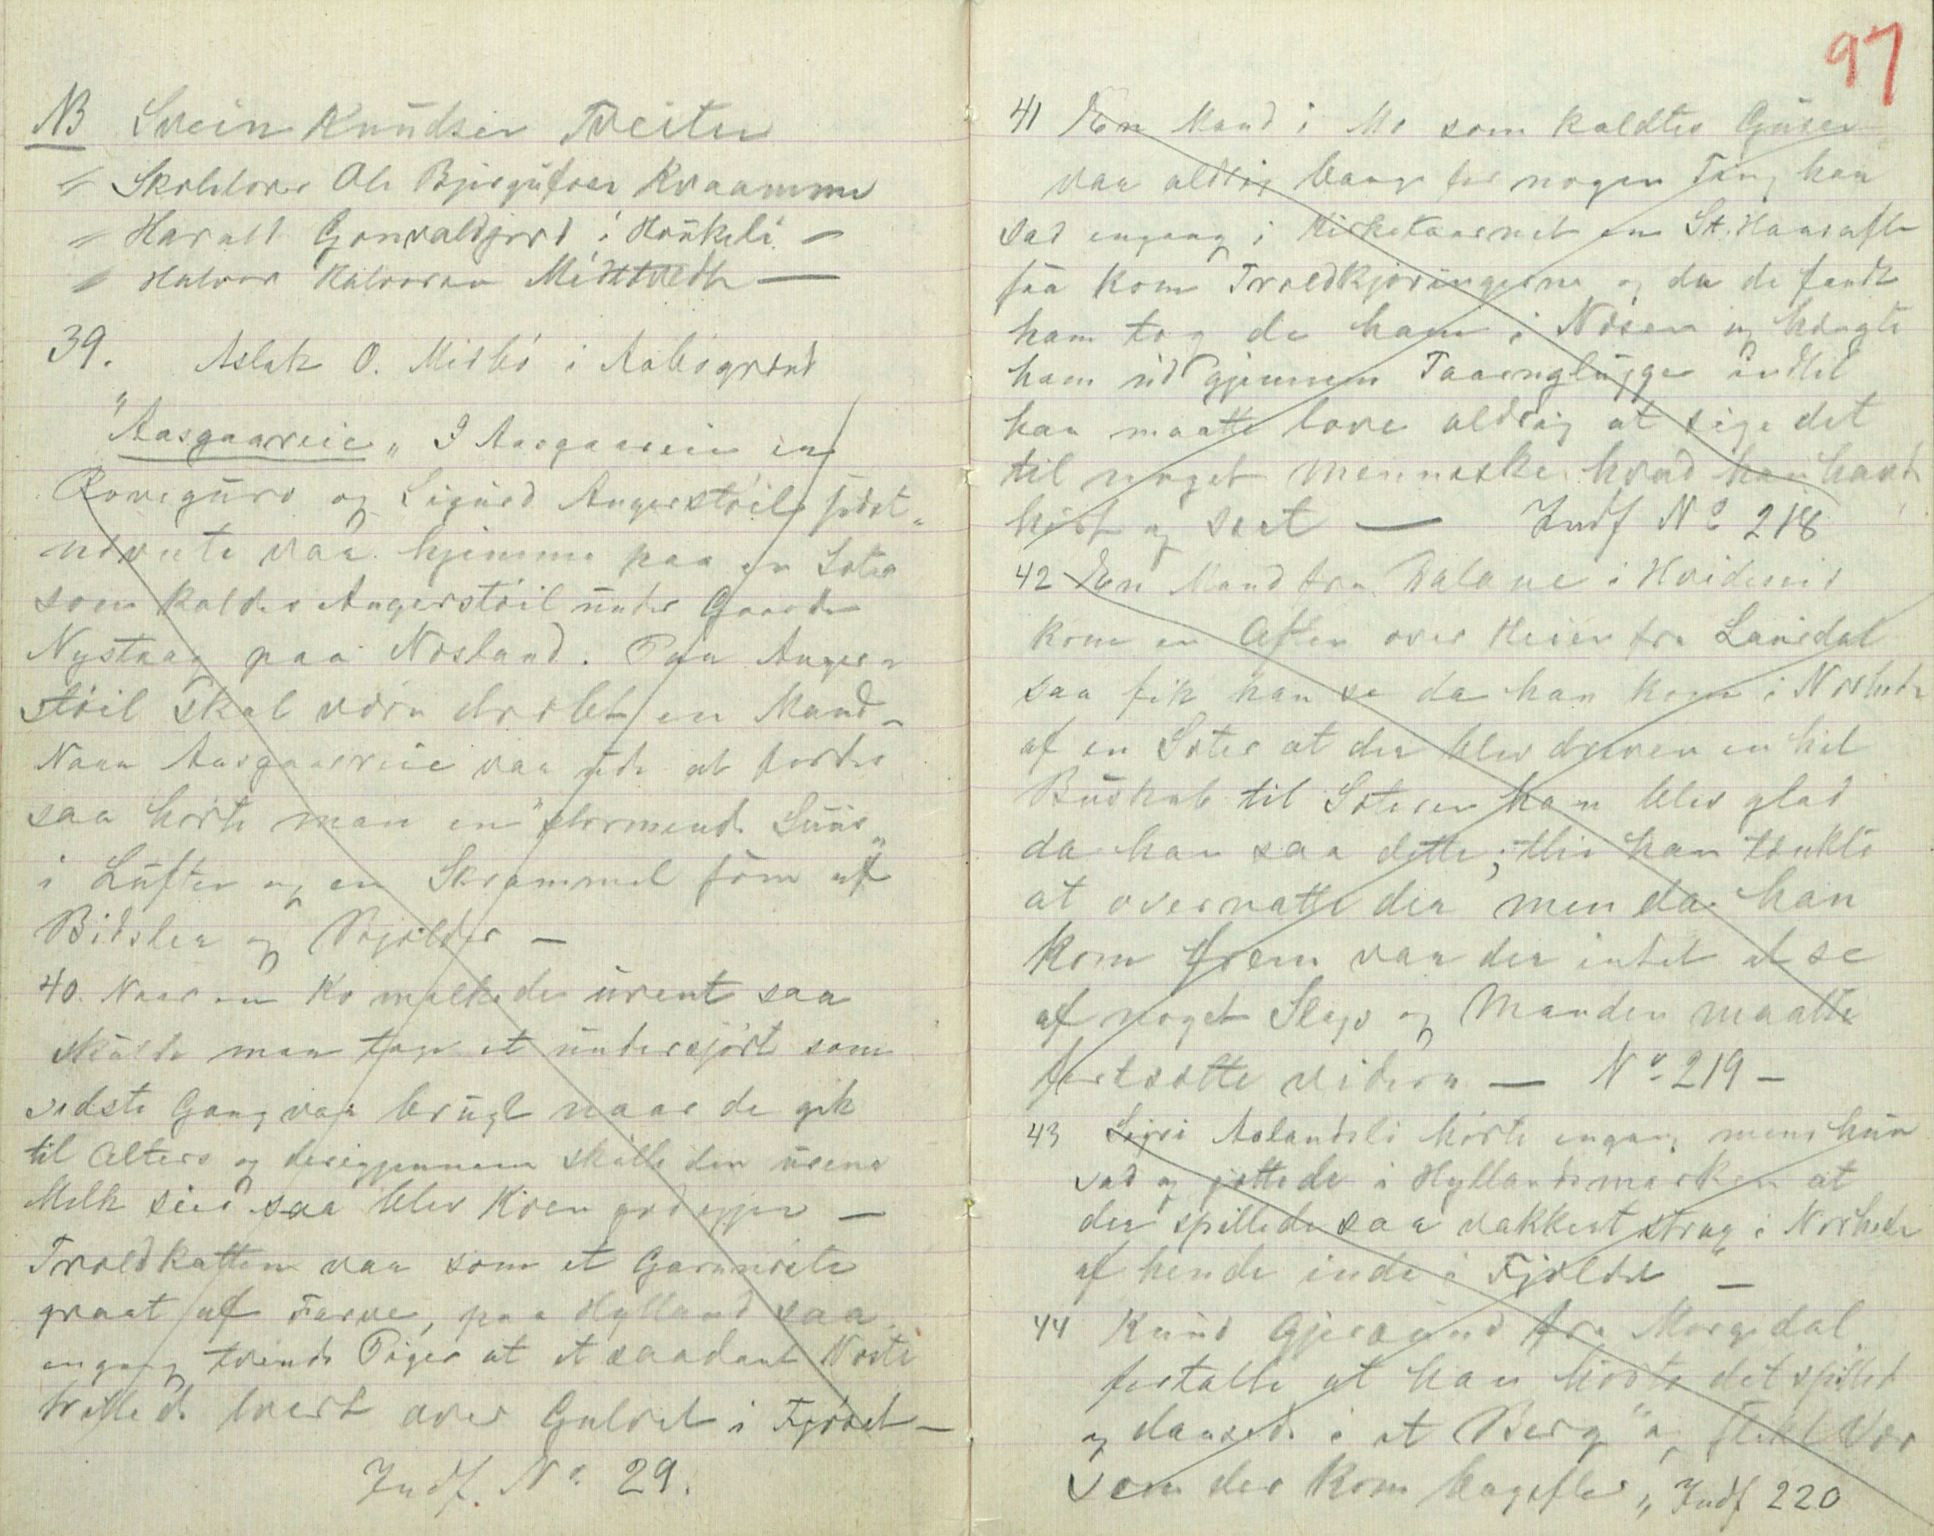 NB Svein Knudsen Tveiten
〃 Skolelærer Ole Bjørgufsen Kvaamme
〃 Harald Gonvaldjord i Haukeli —
〃 Halvor Halvorsen Midtvedt —
39. Aslak O. Misbö i Aabögrænd
"Aasgaareie„ I Aasgaareia en
Roveguro og Sigurd Angerstöil födst-
nævnte var hjemme paa en Sæter
som kaldes Angerstöil under Gaarden
Nystaag paa Næsland. Paa Anger-
stöil skal være dræbt en Mand –
Naar Aasgaareie var ude at færdes
saa hörte man en "stormende Suus„
i Luften og en Skrammel som af
Bidsler og Bjölder –
40. Naar en Ko malkede urent saa
skulde man tage et undersjört som
sidste Gang var brugt naar de gik
til Alters og derigjennem skulle den urene
Melk sies saa blev Koen god igjen —
Troldkatten var som et Garnnöste
graat af Farve, paa Hylland saa
engang tvende Piger at et saadant Nöste
trillede tvert over Gulvet i Fjöset —
Indf. No. 29.
97
41 En Mand i Mo som kaldtes Guser
var aldrig bange for nogen Ting han
sad engang i Kirketaarnet en St. Hansaften
saa kom Troldkjæringerne og da de fandt
ham tog de ham i Næsen og hængte
ham ud gjennem Taarnglugge indtil
han maatte love aldrig at sige det
til noget menneske hvad han havde
hört og seet — Indf No 218
42 En Mand fra Dalane i Hvideseid
kom en Aften over Heien fra Laurdal
saa fik han se da han kom i Nærheden
af en Sæter at der blev dreven en hel
Buskab til Sæteren han blev glad
da han saa dette, thi han tænkte
at overnatte der men da han
kom frem var der intet at se
af noget Slags og Manden maatte
fortsætte videre — No 219 –
43 Sigri Aslandsli hörte engang mens hun
sad og gjættede i Hyllandsmarken at
der spillede saa vakkert strag i Nærheden
af hende inde i Fjeldet" —
44 Knud Gjersund fra Morgedal
fortalte at han hörte det spilled
og dansede i et Berg "og stekt Vær
som der kom bagefter„ Indf 220